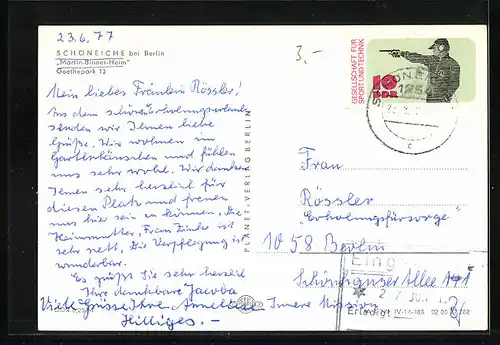 23.6.77
3,-
SCHÖNEICHE bei Berlin
„Martin-Binner-Heim"
Goethepark 13
GESELLSCHAFT FÜR
SPORT UND TECHNIK
10
DDR
Mein liebes Fräulein Rössler!
Aus dem schönen Erholungsurlaub
senden wir Ihnen liebe
Grüße. Wir wohnen im
Gartenhäuschen und fühlen
uns sehr wohl. Wir danken
Ihnen sehr herzlich für
diesen Platz und freuen
uns hier sein zu können. Die
Heimmutter, Frau ist
sehr nett. Die Verpflegung ist
wunderbar.
Es grüßt Sie sehr herzlich
Ihre dankbare Jacoba
Viele Grüsse Ihre Anneliese
Hilliges.-
PLANET-VERLAG BERLIN
Frau
Rössler
"Erholungsfürsorge"
1058 Berlin
Schönhauser Allee 141
Innere Mission
Eing
Erledigt
IV-14-483